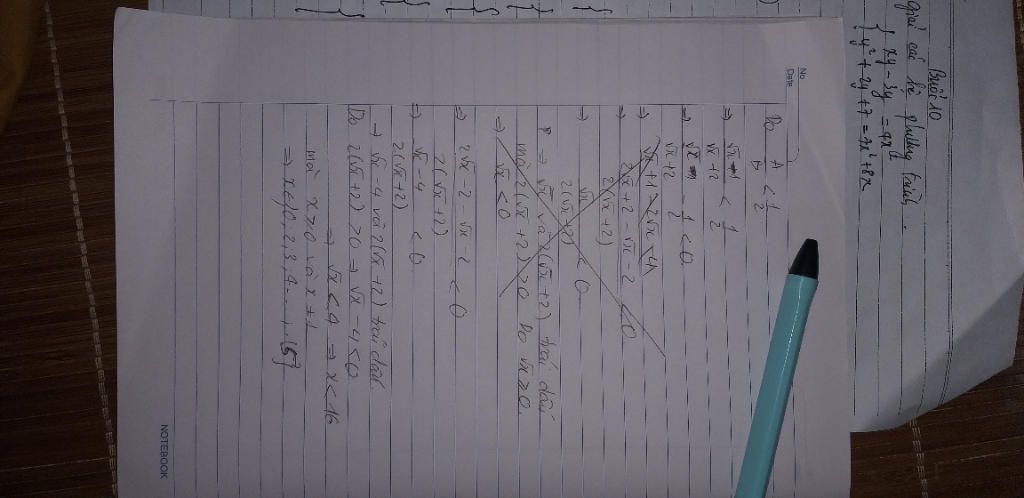 Buổi 10
giải các hệ phương trình.
{ xy - 3y = 4x²
{ y² + 2y + 7 = 7x² + 8x
No
Date
Do A/B < 1/2
⇒ (√x - 1)/(√x + 2) < 1/2
⇒ √x/(√x + 2) - 1/2 < 0
⇒ √x + 1 - 2√x < 4
⇒ (2√x + 2 - √x - 2)/(2(√x + 2)) < 0
⇒ √x/(2(√x + 2)) < 0
⇒ √x và 2(√x + 2) trái dấu
mà 2(√x + 2) > 0 Do √x ≥ 0
⇒ √x < 0
⇒ (2√x - 2 - √x - 2)/(2(√x + 2)) < 0
⇒ (√x - 4)/(2(√x + 2)) < 0
⇒ √x - 4 và 2(√x + 2) trái dấu
Do 2(√x + 2) > 0 ⇒ √x - 4 < 0
⇒ √x < 4 ⇒ x < 16
mà x ≥ 0 và x ≠ 1
⇒ x ∈ {0, 2, 3, 4 ..., 15}
NOTEBOOK